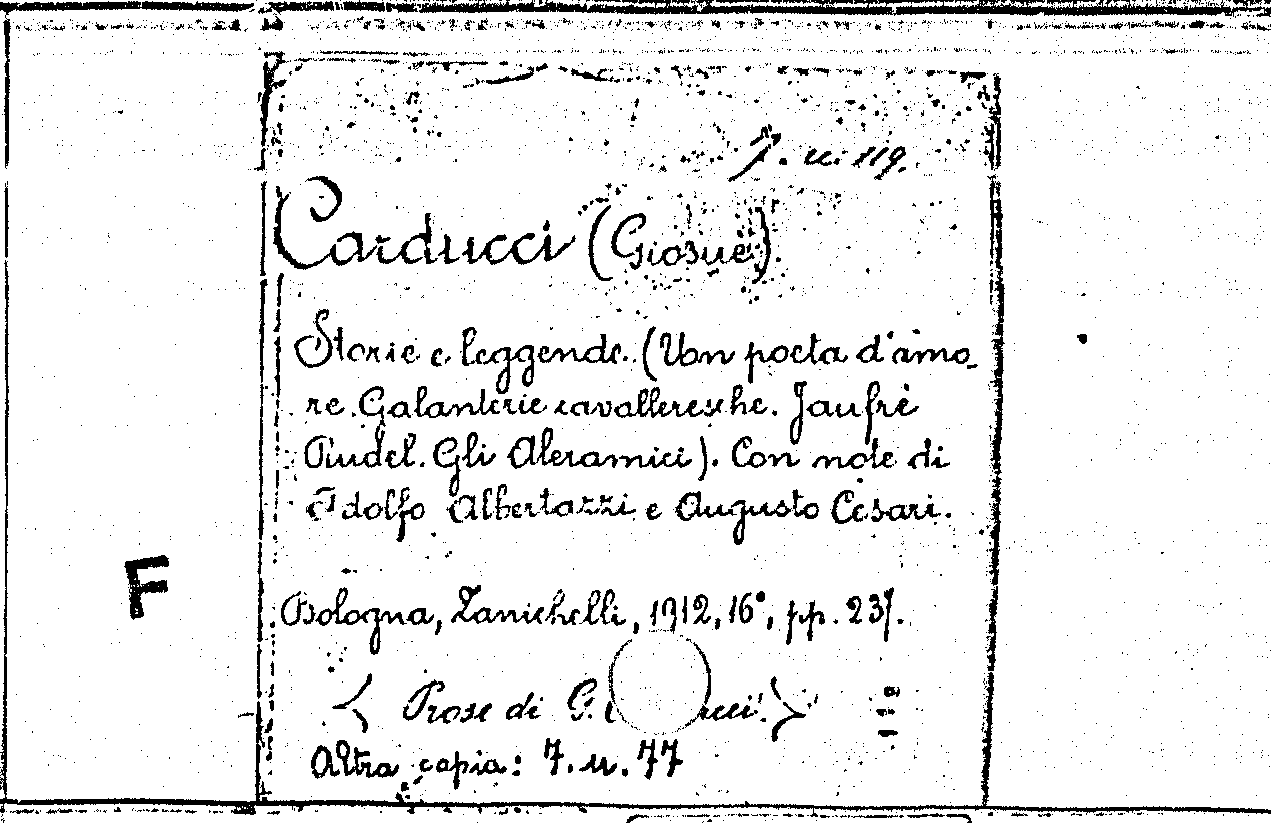 7. u. 119.
Carducci (Giosuè).
Storie e leggende. (Un poeta d'amo-
re. Galanterie cavalleresche. Jaufré
Rudel. Gli Aleramici). Con note di
Adolfo Albertazzi e Augusto Cesari.
F
Bologna, Zanichelli, 1912, 16°, pp. 237.
Prose di G. ucci.
Altra copia: 7. u. 77